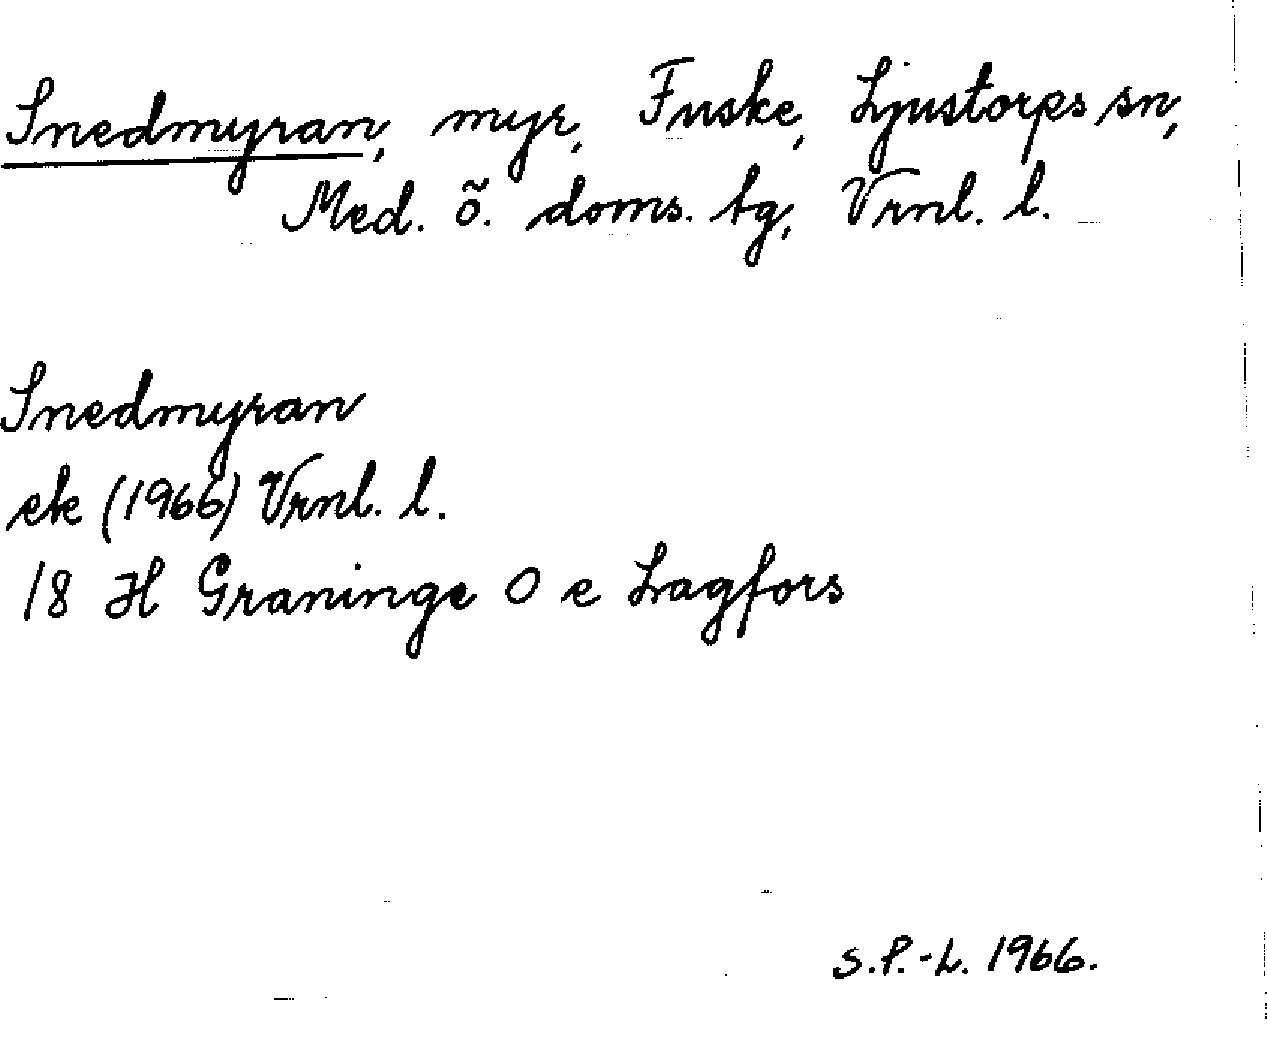 Snedmyran, myr, Fuske, Ljustorps sn,
Med. ö. doms. tg, Vrnl. l.
Snedmyran
ek (1966) Vrnl. l.
18 H Graninge O e Lagfors
S.P.-L. 1966.